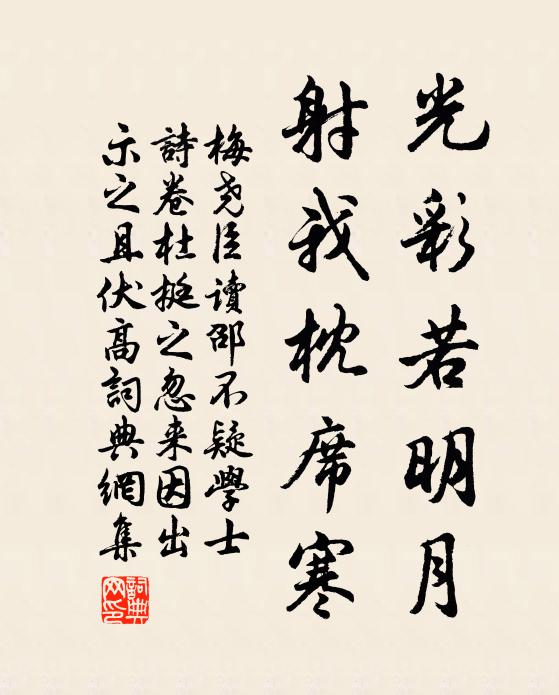 光彩若明月
射我枕席寒
梅尧臣讀邵不疑學士
詩卷杜挺之忽来因出
示之且伏高詞典網集
詞典网印